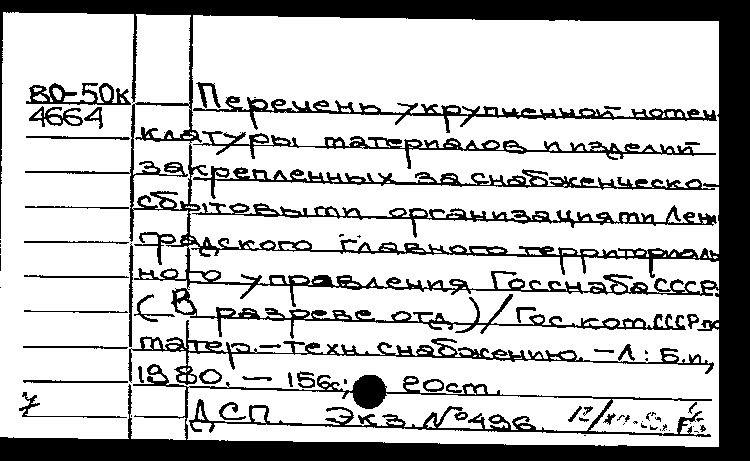 ВО-50к
4664
Перечень укрупненной номен
клатуры материалов и изделий
закрепленных за снабженческо-
сбытовыми организациями Лен
градского Главного территориаль
ного управления Госснаба СССР.
(В разрезе отд.)/Гос.ком.СССР по
матер.-техн. снабжению. - Л.: Б.и.,
1980. - 156с; 20см.
7 ДСП. Экз. №496.